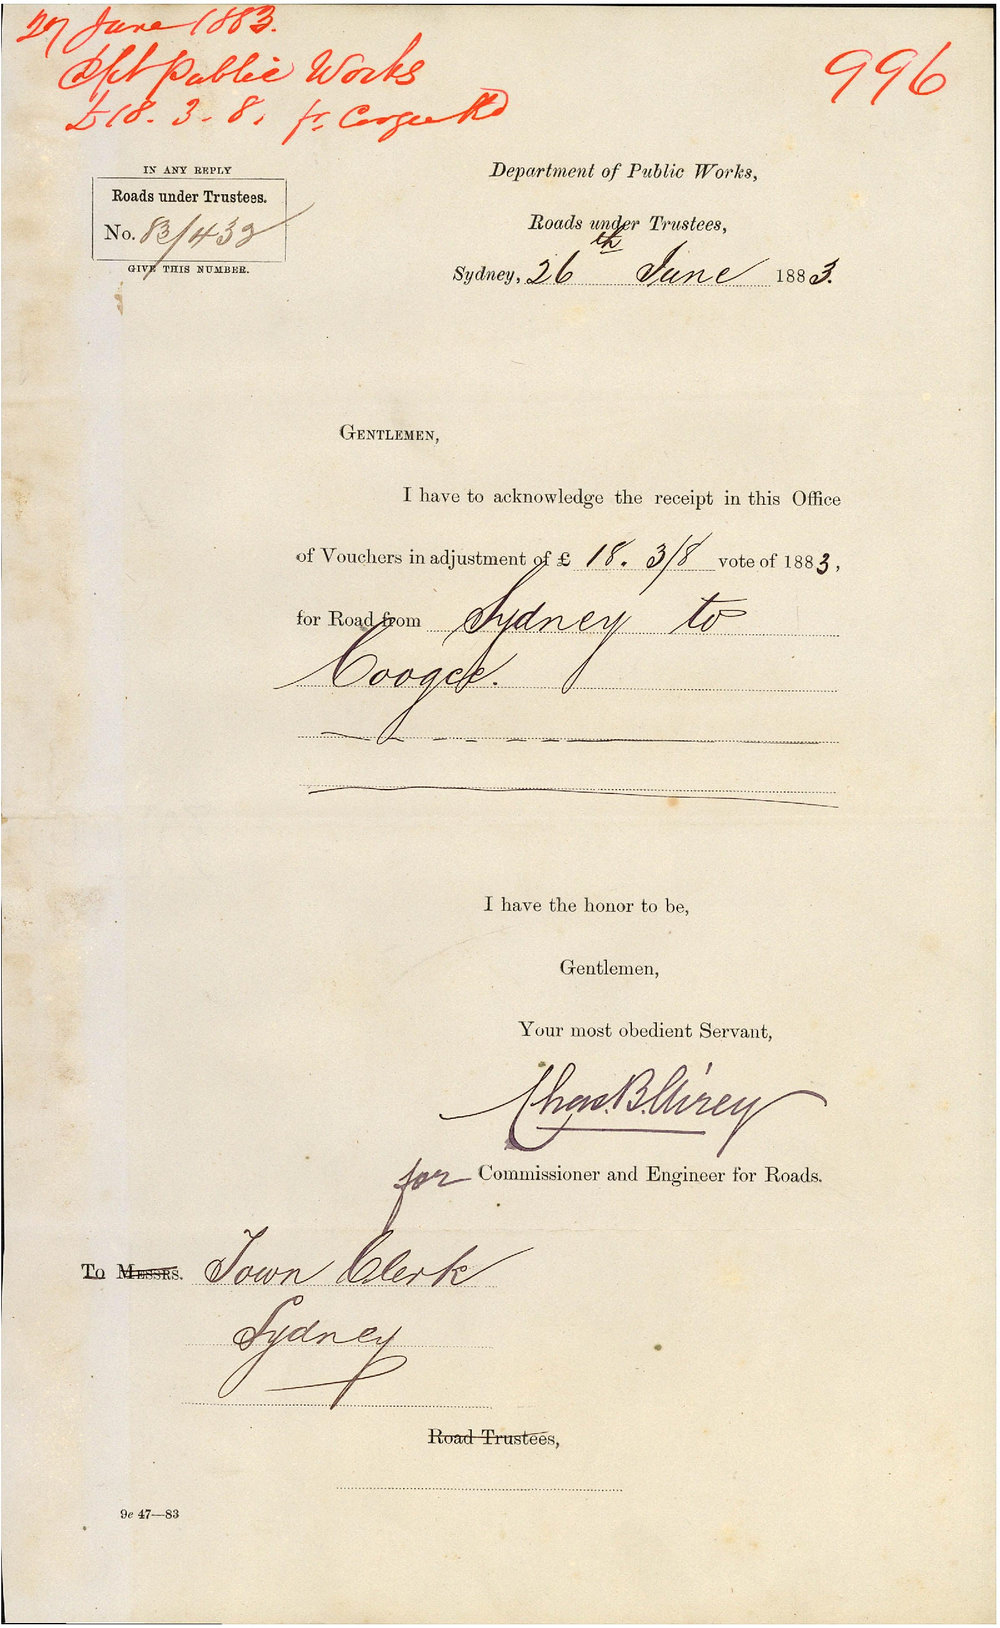 27 June 1883.
Dpt Public Works
£18. 3. 8. fr. Coogee Rd
996
IN ANY REPLY
Roads under Trustees.
No. 83/432
GIVE THIS NUMBER.
Department of Public Works,
Roads under Trustees,
Sydney, 26th June 1883.
GENTLEMEN,
I have to acknowledge the receipt in this Office
of Vouchers in adjustment of £ 18. 3/8 vote of 1883,
for Road from Sydney to
Coogee.
I have the honor to be,
Gentlemen,
Your most obedient Servant,
Chas. B. Airey
for Commissioner and Engineer for Roads.
To MESSRS. Town Clerk
Sydney
Road Trustees,
9e 47—83